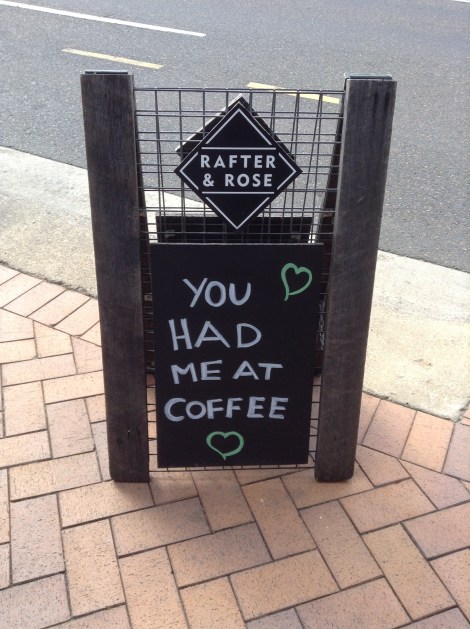 RAFTER
& ROSE
YOU
HAD
ME AT
COFFEE